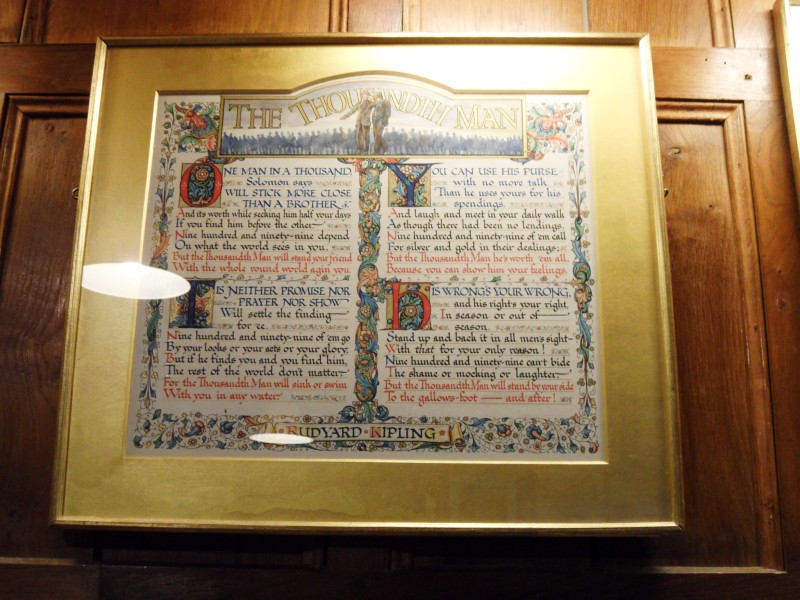 THE THOUSANDTH MAN
ONE MAN IN A THOUSAND,
Solomon says
WILL STICK MORE CLOSE
THAN A BROTHER
And its worth while seeking him half your days
If you find him before the other
Nine hundred and ninety-nine depend
On what the world sees in you,
But the Thousandth Man will stand your friend
With the whole round world agin you.
'TIS NEITHER PROMISE NOR
PRAYER NOR SHOW
Will settle the finding
for 'ee.
Nine hundred and ninety-nine of 'em go
By your looks or your acts or your glory.
But if he finds you and you find him,
The rest of the world don't matter
For the Thousandth Man will sink or swim
With you in any water.
YOU CAN USE HIS PURSE
with no more talk
Than he uses yours for his
spendings.
And laugh and meet in your daily walk
As though there had been no lendings.
Nine hundred and ninety-nine of 'em call
For silver and gold in their dealings;
But the Thousandth Man he's worth 'em all,
Because you can show him your feelings.
HIS WRONG'S YOUR WRONG,
and his right's your right,
In season or out of
season.
Stand up and back it in all men's sight-
With that for your only reason!
Nine hundred and ninety-nine can't bide
The shame or mocking or laughter,
But the Thousandth Man will stand by your side
To the gallows-foot — and after!
RUDYARD KIPLING